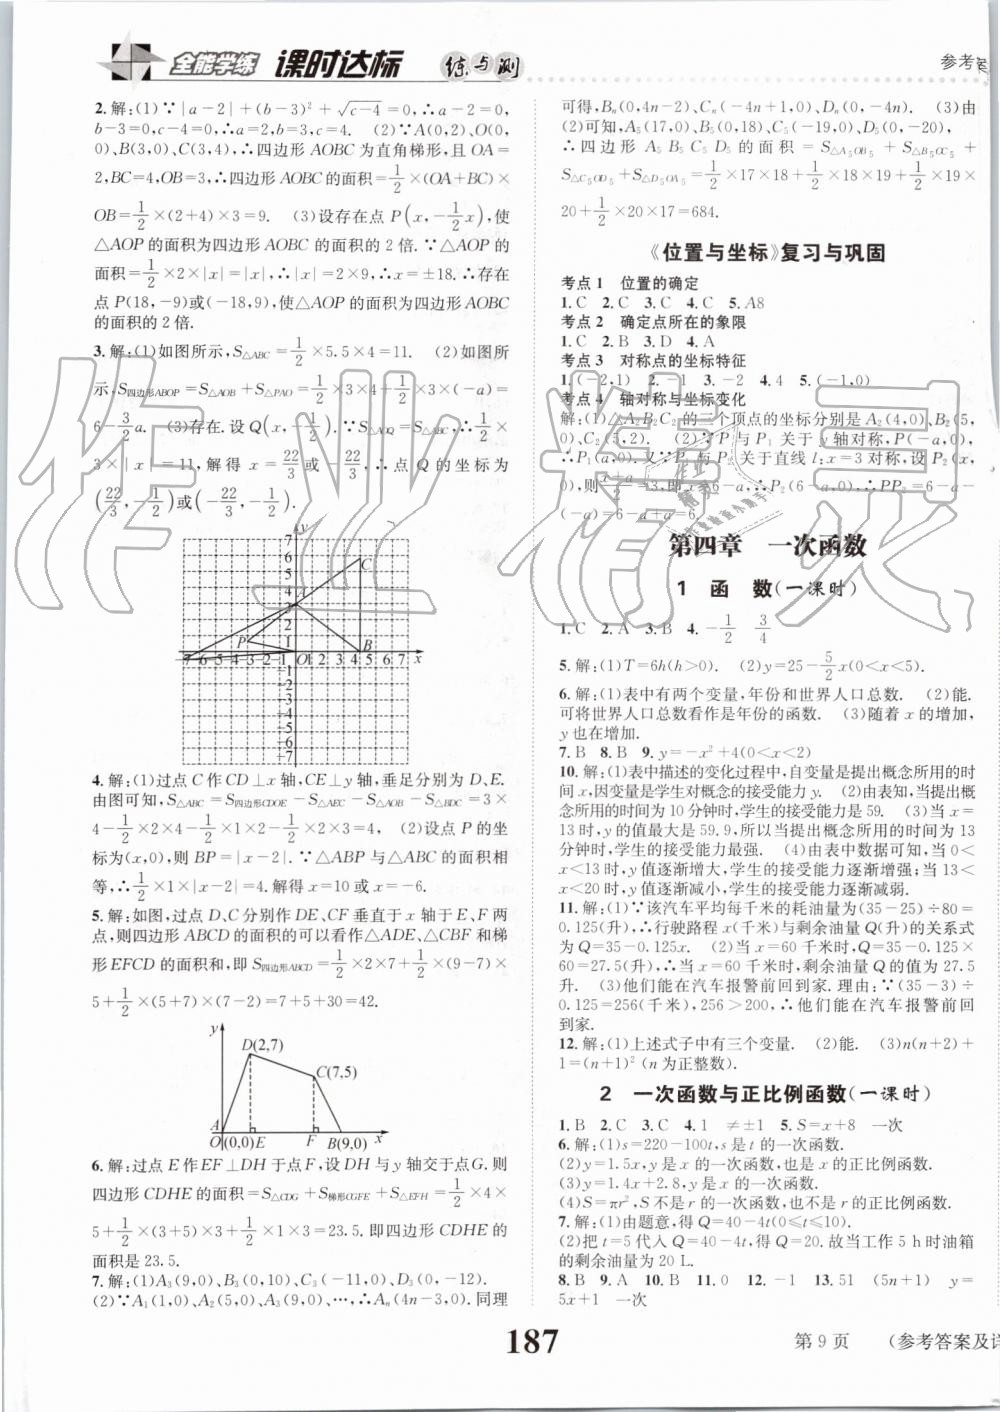 全能学练 课时达标 练与测
参考案
2.解:(1)∵|a-2|+(b-3)²+√c-4=0,∴a-2=0,
b-3=0,c-4=0,∴a=2,b=3,c=4. (2)∵A(0,2),O(0,
0)、B(3,0)、C(3,4),∴四边形AOBC为直角梯形,且OA=
2,BC=4,OB=3,∴四边形AOBC的面积=1/2×(OA+BC)×
OB=1/2×(2+4)×3=9. (3)设存在点P(x,-1/2x),使
△AOP的面积为四边形AOBC的面积的2倍.∵△AOP的
面积=1/2×2×|x|=|x|,∴|x|=2×9,∴x=±18.∴存在
点P(18,-9)或(-18,9),使△AOP的面积为四边形AOBC
的面积的2倍.
3.解:(1)如图所示,S△ABC=1/2×5.5×4=11. (2)如图所
示,S四边形ABOP=S△AOB+S△PAO=1/2×3×4+1/2×3×(-a)=
6-3/2a. (3)存在.设Q(x,-1/2).∵S△AOQ=S△ABC,∴1/2×
3×|x|=11,解得x=22/3或-22/3,∴点Q的坐标为
(22/3,-1/2)或(-22/3,-1/2).
7
6
5
4
3
2
1
C
A
P
B
-7-6-5-4-3-2-1 O 1 2 3 4 5 6 7 x
-1
-2
-3
-4
-5
-6
-7
4.解:(1)过点C作CD⊥x轴,CE⊥y轴,垂足分别为D、E.
由图可知,S△ABC=S四边形CDOE-S△AEC-S△AOB-S△BDC=3×
4-1/2×2×4-1/2×1×2-1/2×2×3=4, (2)设点P的坐
标为(x,0),则BP=|x-2|.∵△ABP与△ABC的面积相
等,∴1/2×1×|x-2|=4.解得x=10或x=-6.
5.解:如图,过点D、C分别作DE、CF垂直于x轴于E、F两
点,则四边形ABCD的面积的可以看作△ADE、△CBF和梯
形EFCD的面积和,即S四边形ABCD=1/2×2×7+1/2×(9-7)×
5+1/2×(5+7)×(7-2)=7+5+30=42.
y
D(2,7)
C(7,5)
A
O (0,0)E F B(9,0) x
6.解:过点E作EF⊥DH于点F,设DH与y轴交于点G.则
四边形CDHE的面积=S△CDG+S梯形CGFE+S△EFH=1/2×4×
5+1/2×(3+5)×3+1/2×1×3=23.5.即四边形CDHE的
面积是23.5.
7.解:(1)A₃(9,0)、B₃(0,10)、C₃(-11,0)、D₃(0,-12).
(2)∵A₁(1,0)、A₂(5,0)、A₃(9,0)、…,∴Aₙ(4n-3,0).同理
可得,Bₙ(0,4n-2)、Cₙ(-4n+1,0)、Dₙ(0,-4n). (3)由
(2)可知,A₅(17,0)、B₅(0,18)、C₅(-19,0)、D₅(0,-20),
∴四边形A₅B₅C₅D₅的面积=S△A₅OB₅+S△B₅OC₅+
S△C₅OD₅+S△D₅OA₅=1/2×17×18+1/2×18×19+1/2×19×
20+1/2×20×17=684.
《位置与坐标》复习与巩固
考点1 位置的确定
1.C 2.C 3.C 4.C 5.A8
考点2 确定点所在的象限
1.C 2.B 3.D 4.A
考点3 对称点的坐标特征
1.(-2,1) 2.-1 3.-2 4.4 5.(-1,0)
考点4 轴对称与坐标变化
解:(1)△A₂B₂C₂的三个顶点的坐标分别是A₂(4,0)、B₂(5,
0)、C₂(5,2). (2)∵P与P₁关于y轴对称,P(-a,0),
∴P₁(a,0).又∵P₁与P₂关于直线l:x=3对称,设P₂(x,
0),则x+a/2=3,即x=6-a,∴P₂(6-a,0),∴PP₂=6-a-
(-a)=6-a+a=6.
第四章 一次函数
1 函 数(一课时)
1.C 2.A 3.B 4.-1/2 3/4
5.解:(1)T=6h(h>0). (2)y=25-5/2x(0<x<5).
6.解:(1)表中有两个变量,年份和世界人口总数. (2)能.
可将世界人口总数看作是年份的函数. (3)随着x的增加,
y也在增加.
7.B 8.B 9.y=-x²+4(0<x<2)
10.解:(1)表中描述的变化过程中,自变量是提出概念所用的时
间x,因变量是学生对概念的接受能力y. (2)由表知,当提出概
念所用的时间为10分钟时,学生的接受能力是59. (3)当x=
13时,y的值最大是59.9,所以当提出概念所用的时间为13
分钟时,学生的接受能力最强. (4)由表中数据可知,当0<
x<13时,y值逐渐增大,学生的接受能力逐渐增强;当13<
x<20时,y值逐渐减小,学生的接受能力逐渐减弱.
11.解:(1)∵该汽车平均每千米的耗油量为(35-25)÷80=
0.125(升),∴行驶路程x(千米)与剩余油量Q(升)的关系式
为Q=35-0.125x. (2)当x=60千米时,Q=35-0.125×
60=27.5(升),∴当x=60(千米)时,剩余油量Q的值为27.5
升. (3)他们能在汽车报警前回到家.理由:∵(35-3)÷
0.125=256(千米),256>200,∴他们能在汽车报警前回
到家.
12.解:(1)上述式子中有三个变量. (2)能. (3)n(n+2)+
1=(n+1)²(n为正整数).
2 一次函数与正比例函数(一课时)
1.B 2.C 3.C 4.1 ≠±1 5.S=x+8 一次
6.解:(1)s=220-100t,s是t的一次函数.
(2)y=1.5x,y是x的一次函数,也是x的正比例函数.
(3)y=1.4x+2.8,y是x的一次函数.
(4)S=πr²,S不是r的一次函数,也不是r的正比例函数.
7.解:(1)由题意,得Q=40-4t(0⩽t⩽10).
(2)把t=5代入Q=40-4t,得Q=20.故当工作5 h时油箱
的剩余油量为20 L.
8.B 9.A 10.B 11.0 12.-1 13.51 (5n+1) y=
5x+1 一次
187
第9页
(参考答案及详
作业精灵